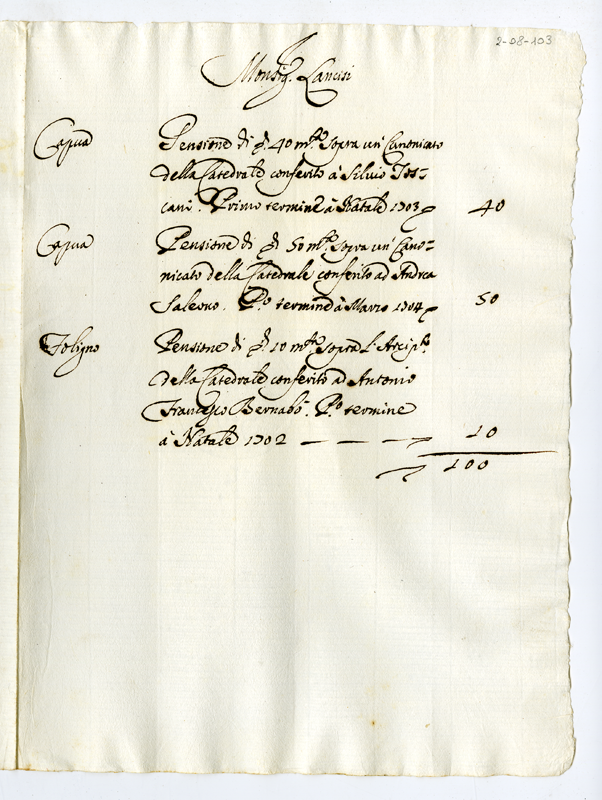 2-08-103
Monsig.r Lancisi
Capua Pensione di 40 m.ta sopra un' Canonicato
della Catedrale conferito à Silvio Tos-
cani. Primo termine à Natale 1703 40
Capua Pensione di 50 m.ta sopra un' Cano=
nicato della Catedrale conferito ad Andrea
Salerno. P.o termine à Marzo 1704 50
Foligno Pensione di 10 m.ta sopra l' Arcip.to
della Catedrale conferito ad Antonio
Francesco Bernabò. P.o termine
à Natale 1702 — — — 10
100